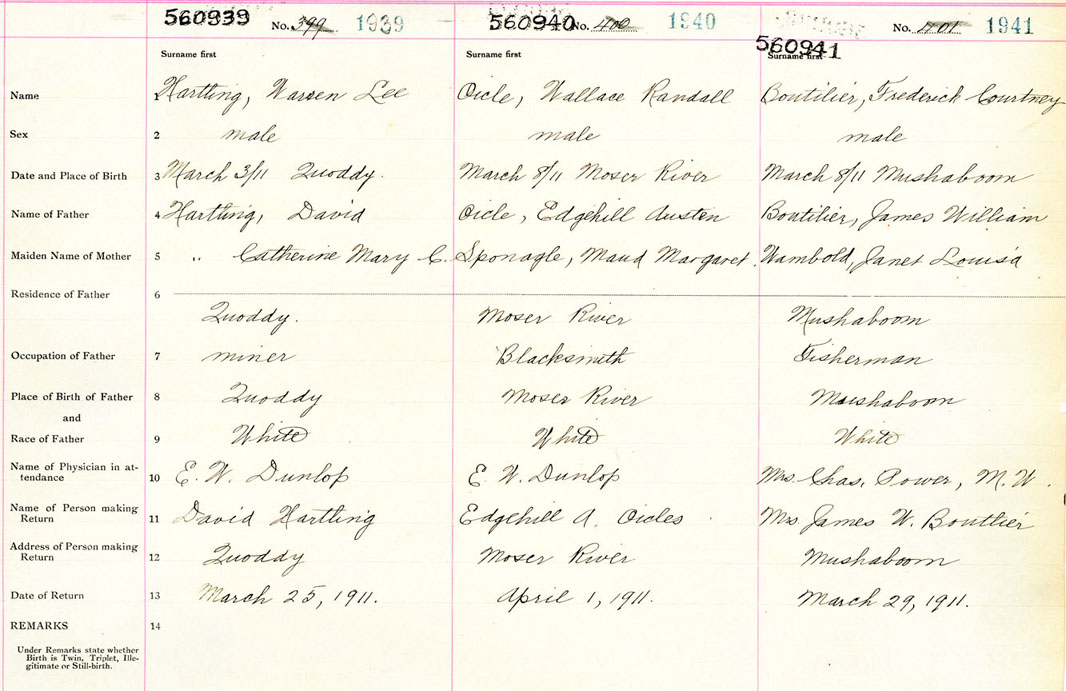 560939 No. 399 1939 560940 No. 400 1940 560941 No. 401 1941
Surname first Surname first Surname first
Name 1 Hartling, Warren Lee Oicle, Wallace Randall Boutilier, Frederick Courtney
Sex 2 male male male
Date and Place of Birth 3 March 3/11 Quoddy. March 8/11 Moser River March 8/11 Mushaboom
Name of Father 4 Hartling, David Oicle, Edgehill Austen Boutilier, James William
Maiden Name of Mother 5 " Catherine Mary C. Sponagle, Maud Margaret. Wambold, Janet Louisa
Residence of Father 6
Quoddy. Moser River Mushaboom
Occupation of Father 7 miner Blacksmith Fisherman
Place of Birth of Father 8 Quoddy Moser River Mushaboom
and
Race of Father 9 White White White
Name of Physician in at-
tendance 10 E. W. Dunlop E. W. Dunlop Mrs. Chas. Power, M. W.
Name of Person making
Return 11 David Hartling Edgehill A. Oicles Mrs James W. Bouttier
Address of Person making
Return 12 Quoddy Moser River Mushaboom
Date of Return 13 March 25, 1911. April 1, 1911. March 29, 1911.
REMARKS 14
Under Remarks state whether
Birth is Twin, Triplet, Ille-
gitimate or Still-birth.